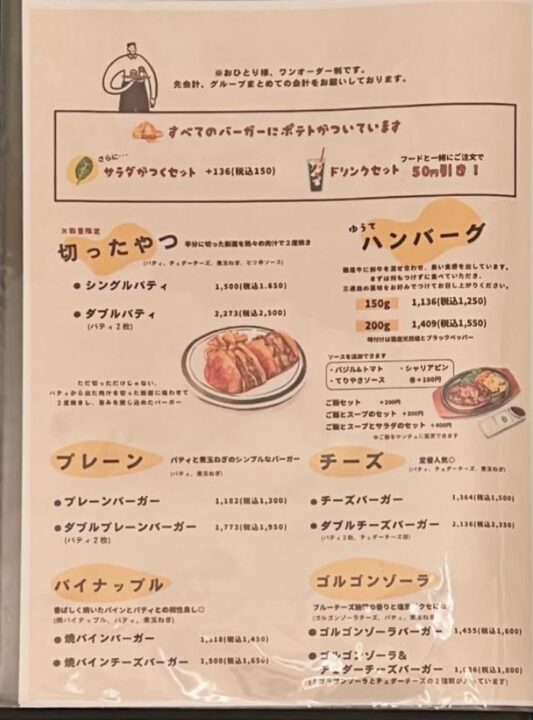 ※おひとり様、ワンオーダー制です。
先会計、グループまとめての会計をお願いしております。
すべてのバーガーにポテトがついています
さらに…
サラダがつくセット +136(税込150)
フードと一緒にご注文で
ドリンクセット 50円引き！
※数量限定
切ったやつ 半分に切った断面を熱々の肉汁で2度焼き
(パティ、チェダーチーズ、煮玉ねぎ、ピリ辛ソース)
シングルパティ 1,500(税込1.650)
ダブルパティ 2,273(税込2,500)
(パティ2枚)
ただ切っただけじゃない、
パティから出た肉汁を切った断面に吸わせて
2度焼きし、旨みを閉じ込めたバーガー
ゆうて
ハンバーグ
国産牛に和牛を混ぜ合わせ、良い食感を出しています。
まずは何もつけずに食べていただき、
三通りの薬味をお好みでつけてお召し上がりください。
150g 1,136(税込1,250)
200g 1,409(税込1,550)
味付けは国産天然塩とブラックペッパー
ソースを追加できます
・バジル&トマト ・シャリアピン
・てりやきソース 各+100円
ご飯セット +200円
ご飯とスープのセット +300円
ご飯とスープとサラダのセット +400円
※ご飯をマンチュに変更できます
プレーン パティと煮玉ねぎのシンプルなバーガー
(パティ、煮玉ねぎ)
プレーンバーガー 1,182(税込1,300)
ダブルプレーンバーガー 1,773(税込1,950)
(パティ2枚)
チーズ 定番人気◎
(パティ、チェダーチーズ、煮玉ねぎ)
チーズバーガー 1,364(税込1,500)
ダブルチーズバーガー 2,136(税込2,350)
(パティ2枚、チェダーチーズ2枚)
パイナップル
香ばしく焼いたパインとパティとの相性良し◎
(焼パイナップル、パティ、煮玉ねぎ)
焼パインバーガー 1,318(税込1,450)
焼パインチーズバーガー 1,500(税込1,650)
ゴルゴンゾーラ
ブルーチーズ独特の香りと塩気がクセになる
(ゴルゴンゾーラチーズ、パティ、煮玉ねぎ)
ゴルゴンゾーラバーガー 1,455(税込1,600)
ゴルゴンゾーラ&
チェダーチーズバーガー 1,636(税込1,800)
(ゴルゴンゾーラとチェダーチーズの2種類が入っています)